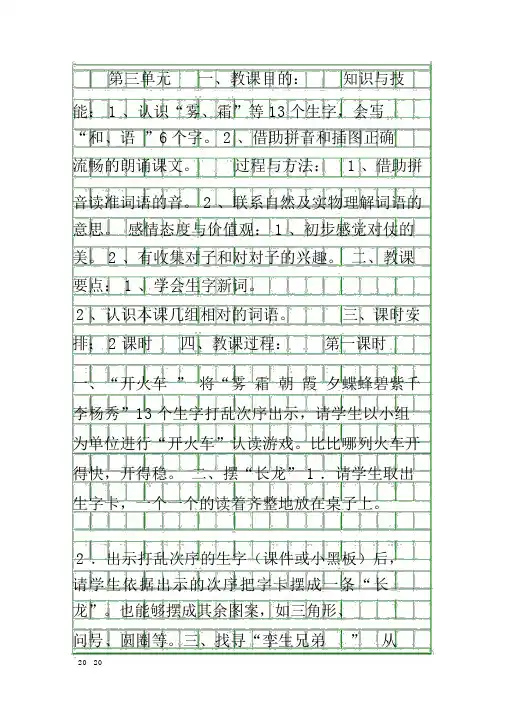 第三单元 一、教课目的： 知识与技
能：1、认识“雾、霜”等13个生字，会写
“和、语 ”6个字。2、借助拼音和插图正确
流畅的朗诵课文。 过程与方法： 1、借助拼
音读准词语的音。2、联系自然及实物理解词语的
意思。 感情态度与价值观：1、初步感觉对仗的
美。2、有收集对子和对对子的兴趣。 二、教课
要点：1、学会生字新词。
2、认识本课几组相对的词语。 三、课时安
排：2课时 四、教课过程： 第一课时
一、“开火车 ” 将“雾 霜 朝 霞 夕蝶蜂碧紫千
李杨秀”13个生字打乱次序出示，请学生以小组
为单位进行“开火车”认读游戏。比比哪列火车开
得快，开得稳。 二、摆“长龙”1．请学生取出
生字卡，一个一个的读着齐整地放在桌子上。
2．出示打乱次序的生字（课件或小黑板）后，
请学生依据出示的次序把字卡摆成一条“长
龙”。也能够摆成其余图案，如三角形、
问号、圆圈等。三、找寻“孪生兄弟 ” 从
20 20